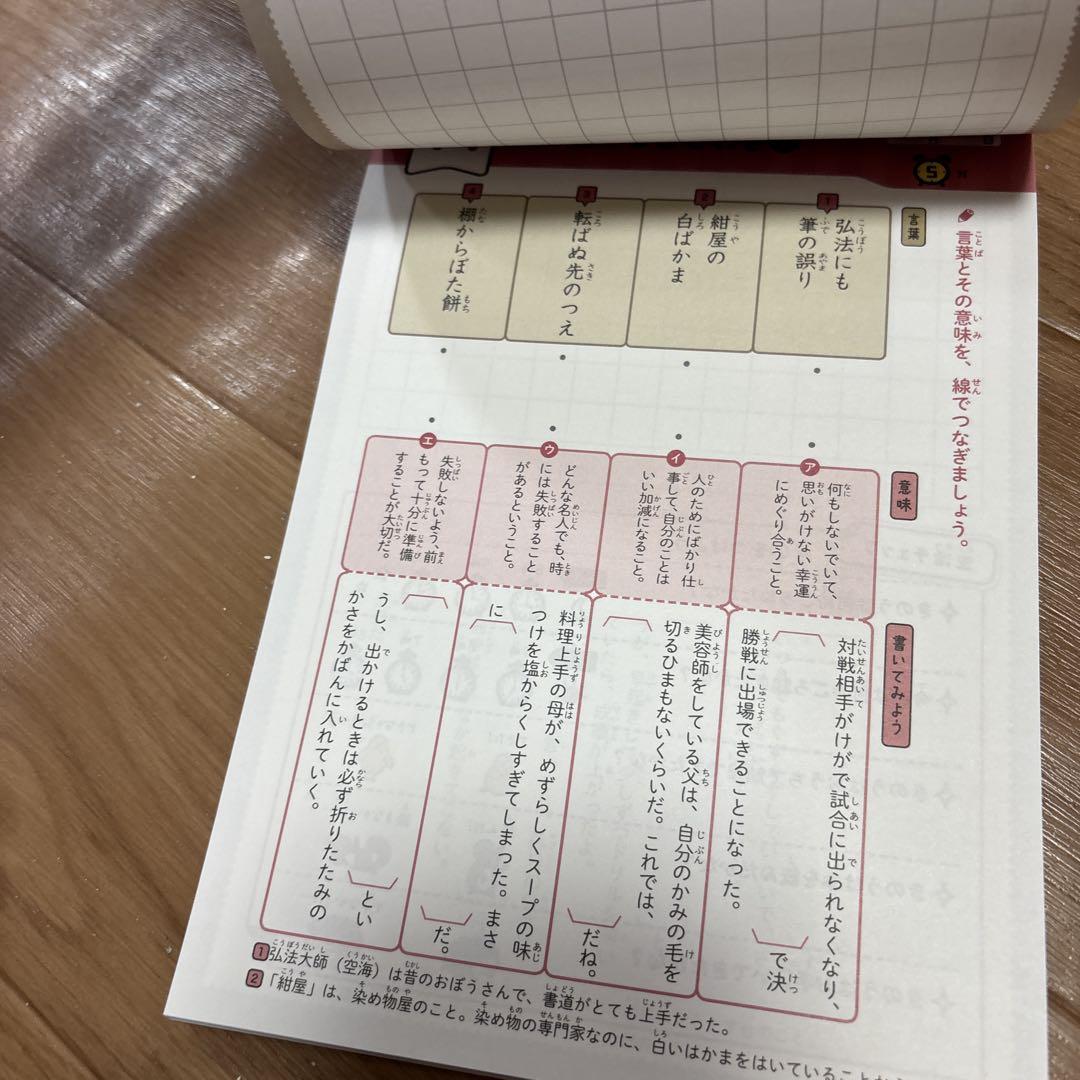 5
言葉とその意味を、線でつなぎましょう。
言葉
1
弘法にも
筆の誤り
2
紺屋の
白ばかま
3
転ばぬ先のつえ
4
棚からぼた餅
意味
ア
何もしないでいて、
思いがけない幸運
にめぐり合うこと。
イ
人のためにばかり仕
事して、自分のことは
いい加減になること。
ウ
どんな名人でも、時
には失敗すること
があるということ。
エ
失敗しないよう、前
もって十分に準備
することが大切だ。
書いてみよう
対戦相手がけがで試合に出られなくなり、
で決
勝戦に出場できることになった。
美容師をしている父は、自分のかみの毛を
切るひまもないくらいだ。これでは、
だね。
料理上手の母が、めずらしくスープの味
つけを塩からくしすぎてしまった。まさ
に
だ。
とい
うし、出かけるときは必ず折りたたみの
かさをかばんに入れていく。
1 弘法大師(空海)は昔のおぼうさんで、書道がとても上手だった。
2 「紺屋」は、染め物屋のこと。染め物の専門家なのに、白いはかまをはいていること